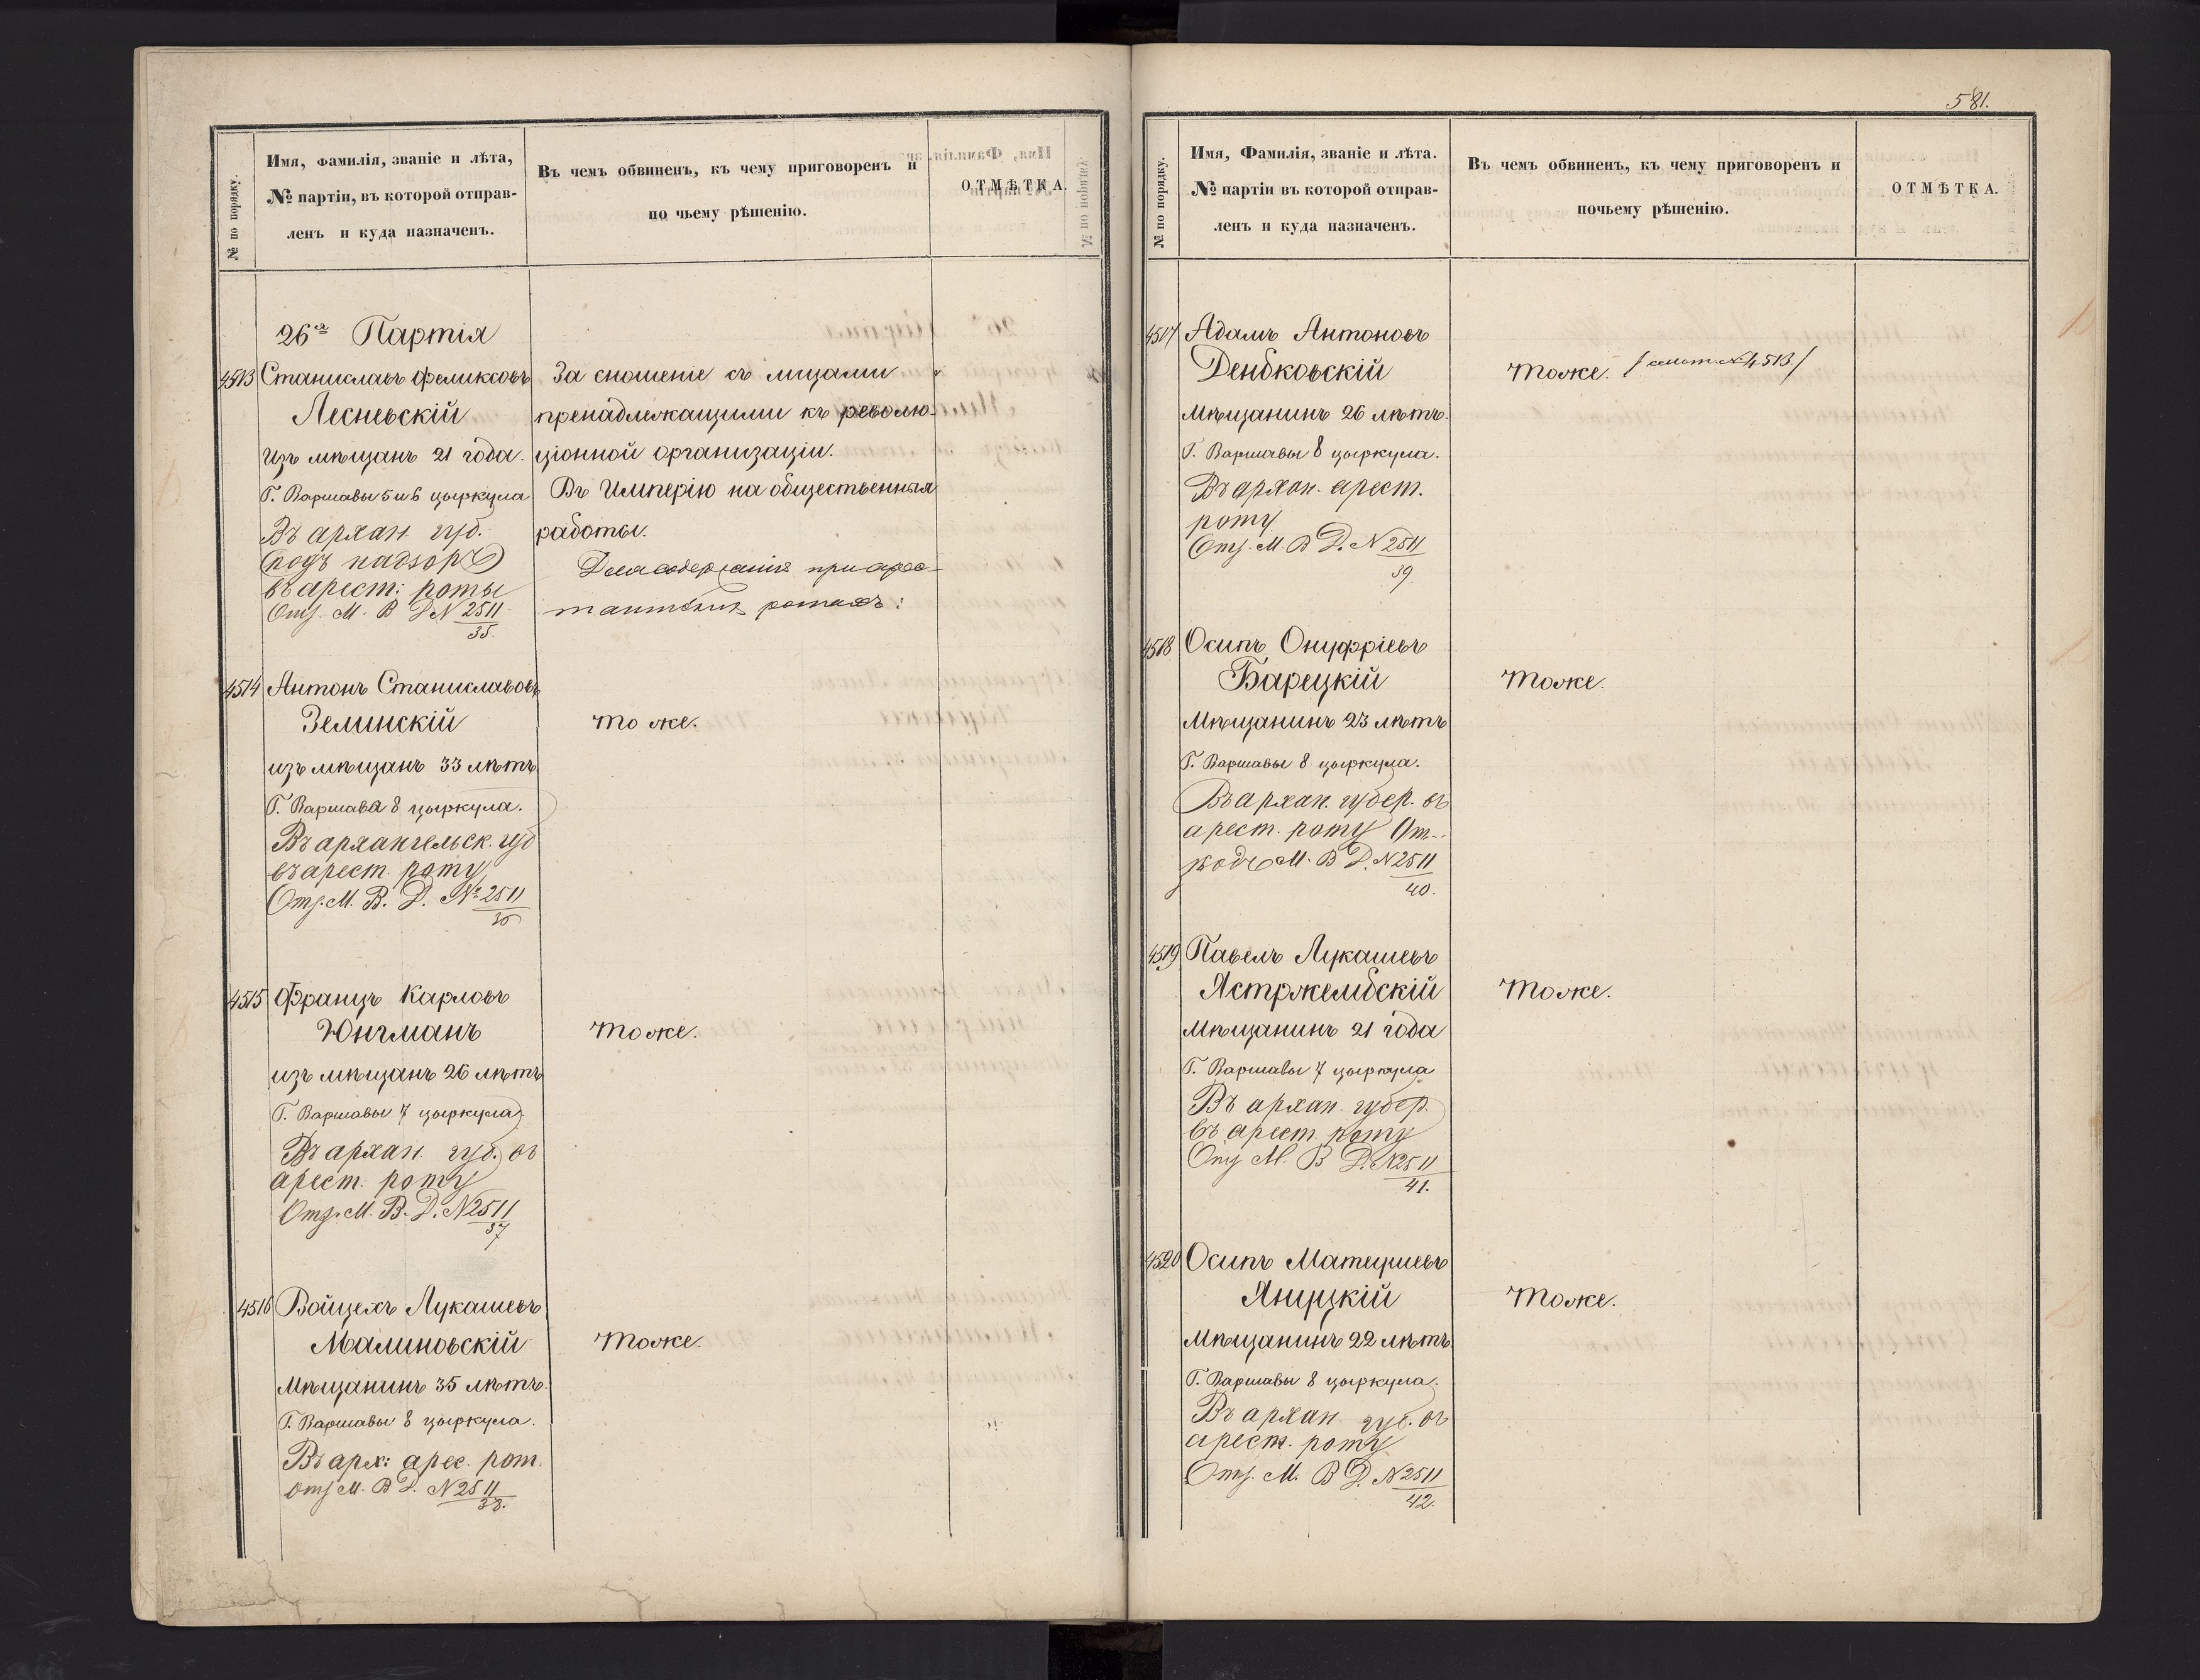 № по порядку.
Имя, фамилія, званіе и лѣта,
№ партіи, въ которой отправ-
ленъ и куда назначенъ.
Въ чемъ обвиненъ, къ чему приговоренъ и
по чьему рѣшенію.
ОТМѢТКА.
26ая Партія
4513 Станиславъ Феликсовъ
Лесневскій
изъ мѣщанъ 21 года.
Г. Варшавы 5 и 6 цыркула
Въ архан. губ.
подъ надзоръ
въ арест: роты
Отз. М. В Д N 2511
35.
За сношеніе съ лицами
пренадлежащими къ револю-
ціонной организаціи.
Въ Имперію на общественныя
работы.
Для содержанія при арес-
тантскихъ ротахъ:
4514 Антонъ Станиславовъ
Зелинскій
изъ мѣщанъ 33 лѣтъ.
Г. Варшава 8 цыркула.
Въ архангельск. губ
въ арест. роту
Отз. М. В. Д. № 2511
36
тоже.
4515 Францъ Карловъ
Юнгманъ
изъ мѣщанъ 26 лѣтъ
Г. Варшавы 7 цыркула
Въ архан. губ. въ
арест. роту
Отз. М. В. Д. N 2511
37
тоже.
4516 Войцехъ Лукашевъ
Малиновскій
Мѣщанинъ 35 лѣтъ.
Г. Варшавы 8 цыркула.
Въ арх: арес. рот.
отз М. В Д. N 2511
38.
тоже.
581.
№ по порядку.
Имя, Фамилія, званіе и лѣта.
№ партіи въ которой отправ-
ленъ и куда назначенъ.
Въ чемъ обвиненъ, къ чему приговоренъ и
почьему рѣшенію.
ОТМѢТКА.
4517 Адамъ Антоновъ
Денбковскій
Мѣщанинъ 26 лѣтъ.
Г. Варшавы 8 цыркула.
Въ архан. арест.
роту
Отз. М. В Д. N 2511
39.
тоже. / смот. N 4513 /
4518 Осипъ Онуфріевъ
Барецкій
Мѣщанинъ 23 лѣтъ
Г. Варшавы 8 цыркула.
Въ архан. губер. въ
арест. роту От-
М. В Д. N 2511
40.
тоже.
4519 Павелъ Лукашевъ
Ястржембскій
Мѣщанинъ 21 года
Г. Варшавы 7 цыркула
Въ архан. губер.
въ арест. роту
Отз М. В Д. N 2511
41.
тоже.
4520 Осипъ Матеушевъ
Яницкій
Мѣщанинъ 22 лѣтъ.
Г. Варшавы 8 цыркула.
Въ архан губ. въ
арест. роту
Отз. М. В Д. N 2511
42.
тоже.